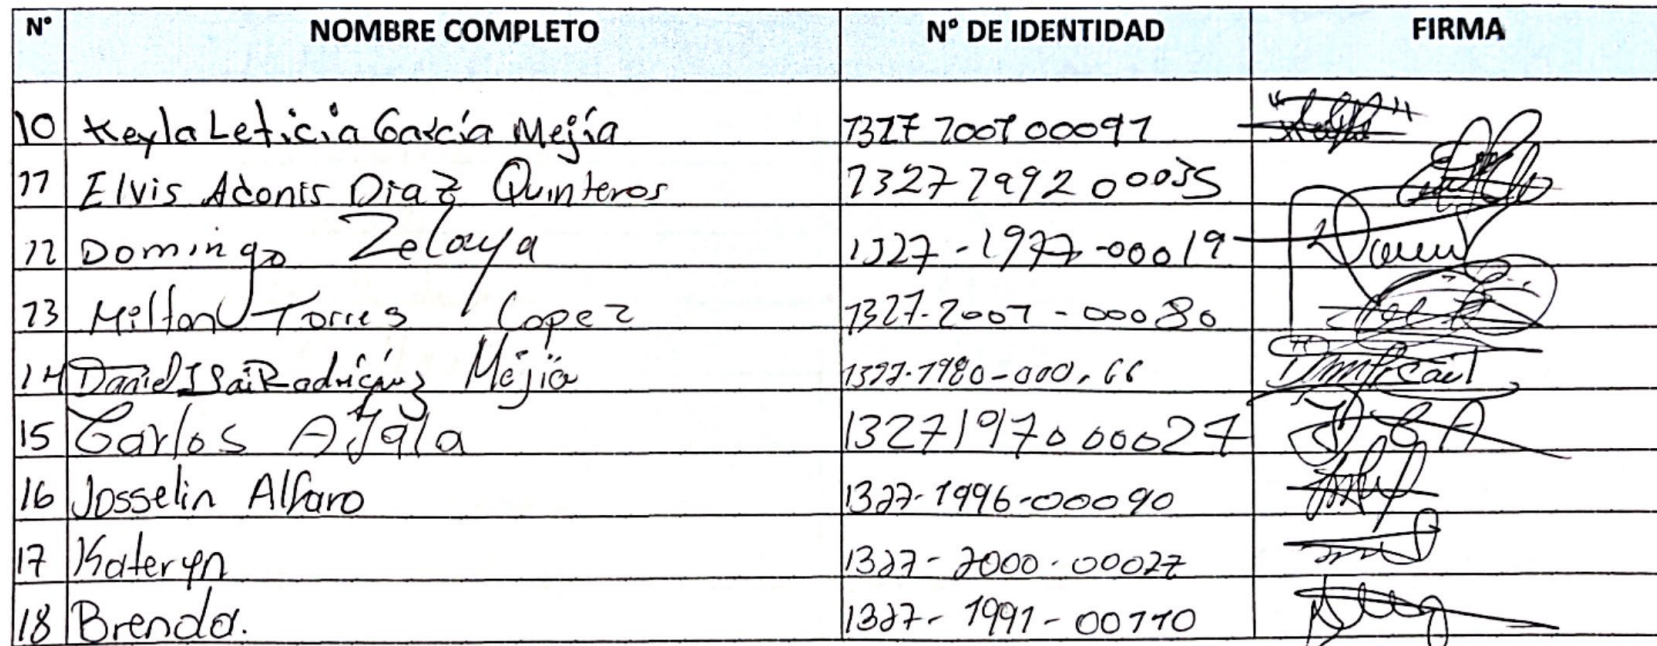 N° NOMBRE COMPLETO N° DE IDENTIDAD FIRMA
10 Keyla Leticia García Mejía 1327 2001 00091
11 Elvis Adonis Diaz Quinteros 1327 1992 00035
12 Domingo Zelaya 1327-1977-00019
13 Milton Torres Lopez 1327-2001-00080
14 Daniel Isai Rodríguez Mejía 1327-1980-000.66
15 Carlos Ayala 1327 1970 00027
16 Josselin Alfaro 1327-1996-00090
17 Kateryn 1327-2000-00027
18 Brenda. 1327-1991-00110